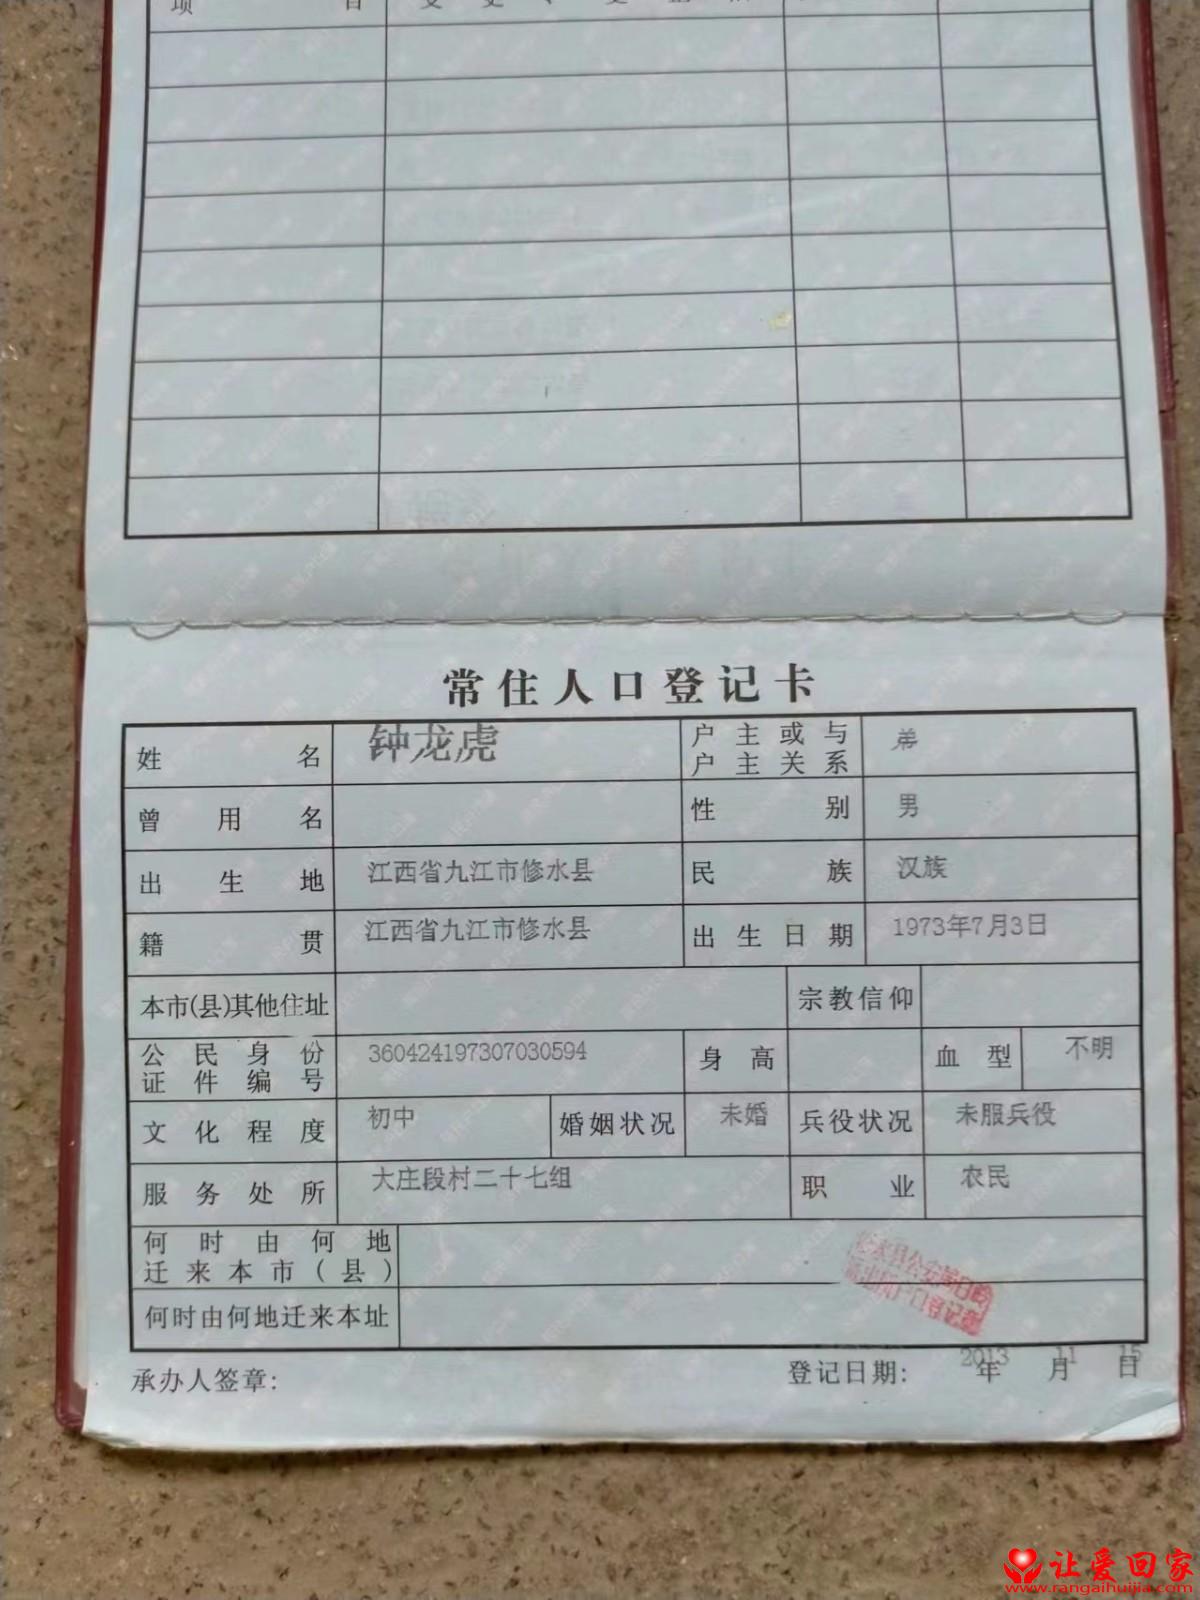 项 目
常住人口登记卡
姓名 钟龙虎 户主或与户主关系 弟
曾用名 性别 男
出生地 江西省九江市修水县 民族 汉族
籍贯 江西省九江市修水县 出生日期 1973年7月3日
本市(县)其他住址 宗教信仰
公民身份证件编号 360424197307030594 身高 血型 不明
文化程度 初中 婚姻状况 未婚 兵役状况 未服兵役
服务处所 大庄段村二十七组 职业 农民
何时由何地迁来本市(县)
何时由何地迁来本址
承办人签章: 登记日期: 2013年11月15日
让爱回家
www.rangaihuijia.com